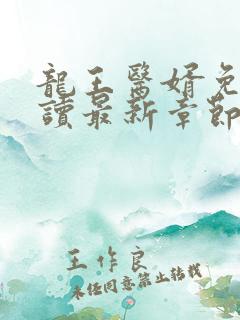 龍王醫婿免
讀最新章節
王作良
未經同意禁止轉載